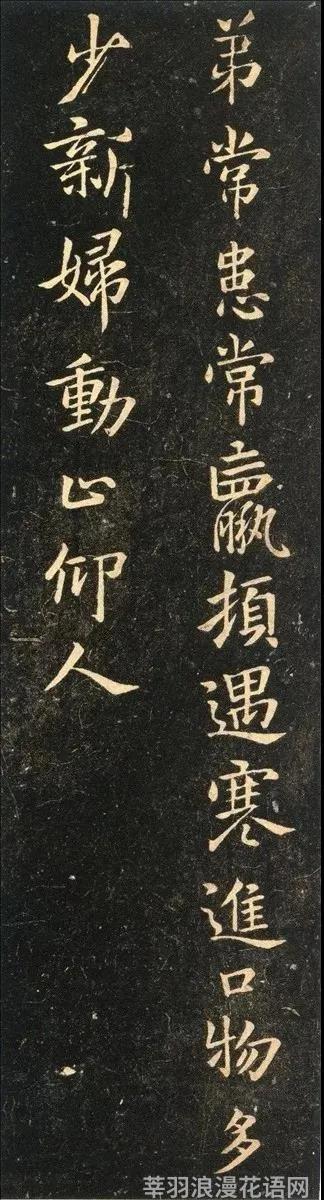 弟常患常羸頓遇寒進口物多
少新婦動止仰人
莘羽浪漫花语网